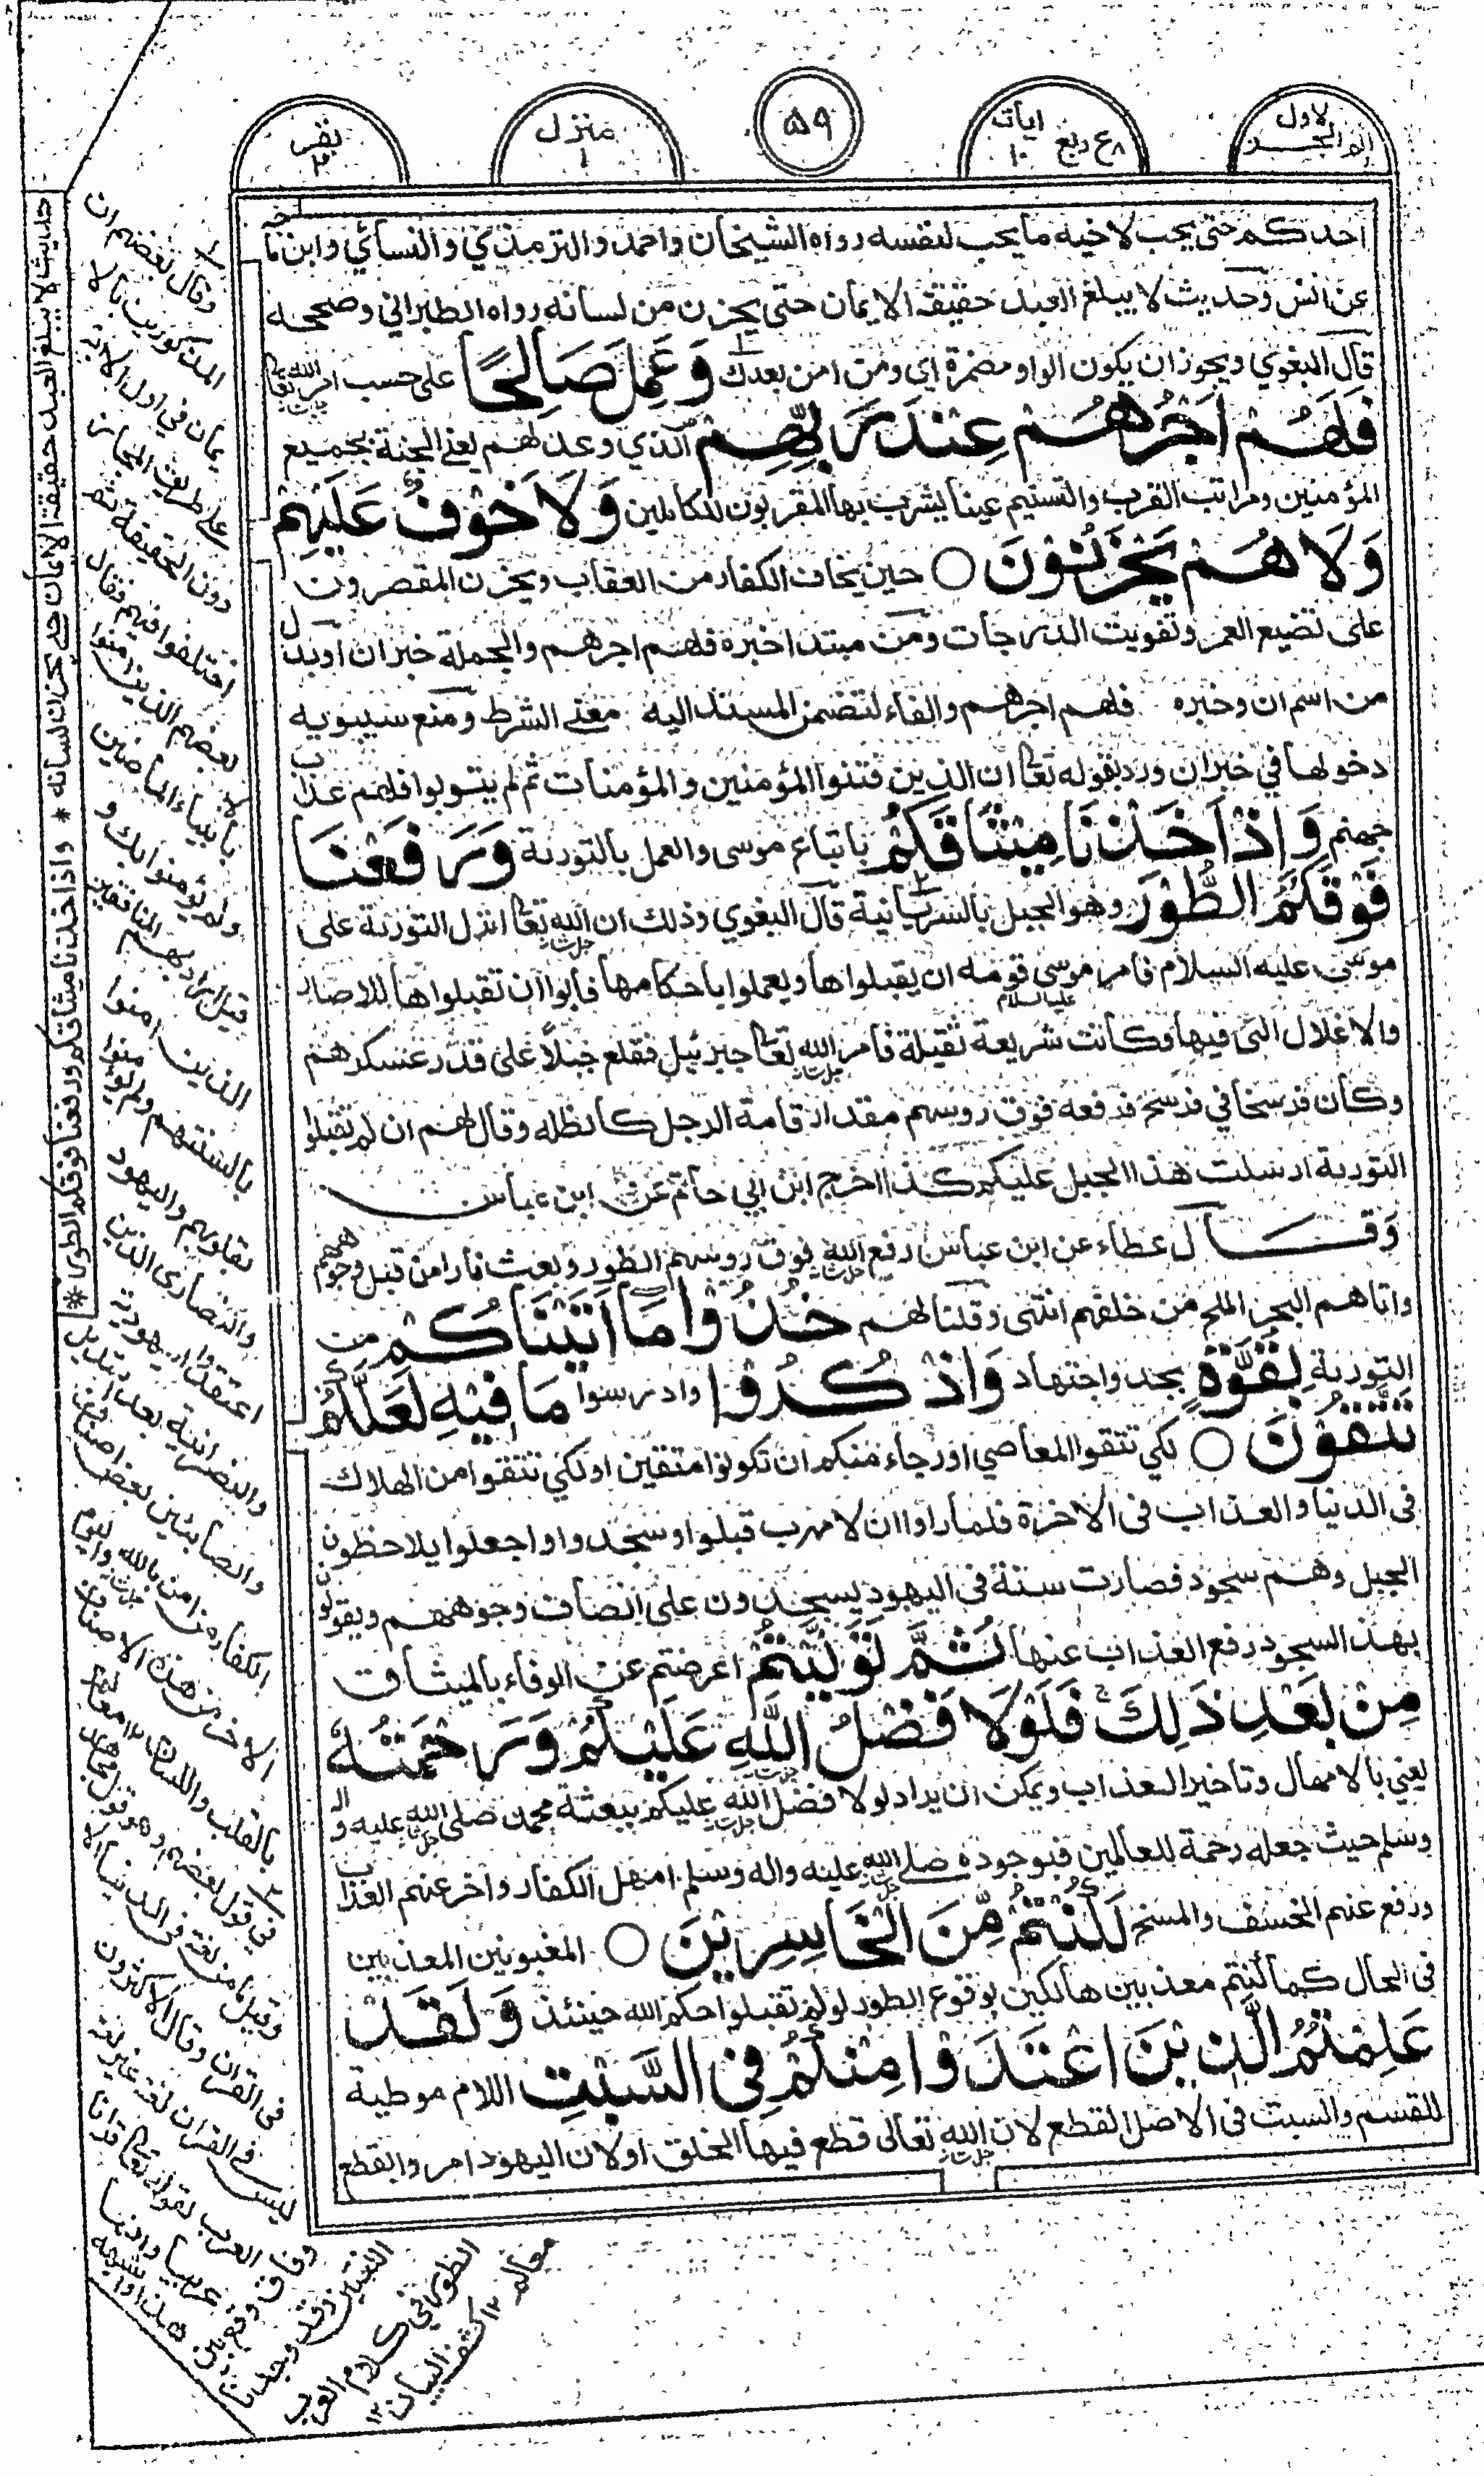 الم الجزء الاول
ايات ١٠
ع٨ ربع
٥٩
منزل ١
بقر ٢
احدكم حتى يحب لاخيه ما يحب لنفسه رواه الشيخان واحمد والترمذي والنسائي وابن ماجه
عن انس وحديث لا يبلغ العبد حقيقة الايمان حتى يحزن من لسانه رواه الطبراني وصححه
قال البغوي ويجوز ان يكون الواو مضمرة اي ومن امن بعدك وَعَمِلَ صَالِحًا على حسب امر الله تعالى
فَلَهُمْ اَجْرُهُمْ عِنْدَ رَبِّهِمْ الذي وعد لهم يعني الجنة بجميع
المؤمنين ومراتب القرب والتسنيم عينا يشرب بها المقربون للكاملين وَلَا خَوْفٌ عَلَيْهِمْ
وَلَا هُمْ يَحْزَنُوْنَ ○ حين يخاف الكفار من العقاب ويحزن المقصرون
على تضيع العمر وتفويت الدرجات ومن مبتدا خبره فلهم اجرهم والجملة خبر ان او بدل
من اسم ان وخبره فلهم اجرهم والفاء لتضمن المسند اليه معنى الشرط ومنع سيبويه
دخولها في خبر ان ورد بقوله تعالى ان الذين فتنوا المؤمنين والمؤمنات ثم لم يتوبوا فلهم عذاب
جهنم وَاِذْ اَخَذْنَا مِيْثَاقَكُمْ باتباع موسى والعمل بالتورية وَرَفَعْنَا
فَوْقَكُمُ الطُّوْرَ وهو الجبل بالسريانية قال البغوي وذلك ان الله تعالى انزل التورية على
موسى عليه السلام فامر موسى عليه السلام قومه ان يقبلوها ويعملوا باحكامها فابوا ان تقبلوها للاصار
والاغلال التي فيها وكانت شريعة ثقيلة فامر الله تعالى جبرئيل فقلع جبلاً على قدر عسكرهم
وكان فرسخا في فرسخ فرفعه فوق روسهم مقدار قامة الرجل كالظلة وقال لهم ان لم تقبلوا
التورية ارسلت هذا الجبل عليكم كذا اخرج ابن ابي حاتم عن ابن عباس
وقال عطاء عن ابن عباس رفع الله فوق روسهم الطور وبعث نارا من قبل وجوههم
واتاهم البحر الملح من خلفهم انتهى وقلنا لهم خُذُوْا مَا اٰتَيْنَاكُمْ من
التورية بِقُوَّةٍ بجد واجتهاد وَاذْكُرُوْا وادرسوا مَا فِيْهِ لَعَلَّكُمْ
تَتَّقُوْنَ ○ لكي تتقوا المعاصي او رجاء منكم ان تكونوا متقين او لكي تتقوا من الهلاك
في الدنيا والعذاب في الاخرة فلما راوا ان لا مهرب قبلوا وسجدوا وجعلوا يلاحظون
الجبل وهم سجود فصارت سنة في اليهود يسجدون على انصاف وجوههم ويقولون
بهذا السجود رفع العذاب عنها ثُمَّ تَوَلَّيْتُمْ اعرضتم عن الوفاء بالميثاق
مِنْ بَعْدِ ذٰلِكَ فَلَوْلَا فَضْلُ اللّٰهِ عَلَيْكُمْ وَرَحْمَتُهٗ
يعني بالامهال وتاخير العذاب ويمكن ان يراد لولا فضل الله عليكم ببعثة محمد صلى الله عليه واله
وسلم حيث جعله رحمة للعالمين فبوجوده صلى الله عليه واله وسلم امهل الكفار واخر عنهم العذاب
ورفع عنهم الخسف والمسخ لَكُنْتُمْ مِّنَ الْخَاسِرِيْنَ ○ المغبونين المعذبين
في الحال كما كنتم معذبين هالكين بوقوع الطور لو لم تقبلوا حكم الله حينئذ وَلَقَدْ
عَلِمْتُمُ الَّذِيْنَ اعْتَدَوْا مِنْكُمْ فِى السَّبْتِ اللام موطية
للقسم والسبت في الاصل القطع لان الله تعالى قطع فيها الخلق او لان اليهود امروا بالقطع
١ وقال بعضهم ان
المذكورين بالا
يمان في اول الاية
على طريق المجاز
دون الحقيقة ثم
اختلفوا فيهم فقال
بعضهم الذين امنوا
بالانبياء الماضين
ولم يؤمنوا بك و
قيل اراد بهم المنافقين
الذين امنوا
بالسنتهم ولم يؤمنوا
بقلوبهم واليهود
والنصارى الذين
اعتقدوا اليهودية
والنصرانية بعد التبديل
والصابئين بعض اصناف
الكفار من امن بالله واليوم
الاخر من هذه الاصناف
بالقلب واللسان ١٢ معالم
٢ في قول بعضهم وهو قول مجاهد
وقيل ما من لغة في الدنيا الا
في القران وقال الاكثرون
ليس في القران لغة غير لغة
العرب لقوله تعالى قرانا
عربيا وانما
هذا واشباهه
وقع من
وفاق
اللغتين وقد وجدنا
الطور في كلام العرب
معالم ١٢ كشف البيان ١٢
حديث لا يبلغ العبد حقيقة الايمان حتى يحزن لسانه * واذ اخذنا ميثاقكم ورفعنا فوقكم الطور *